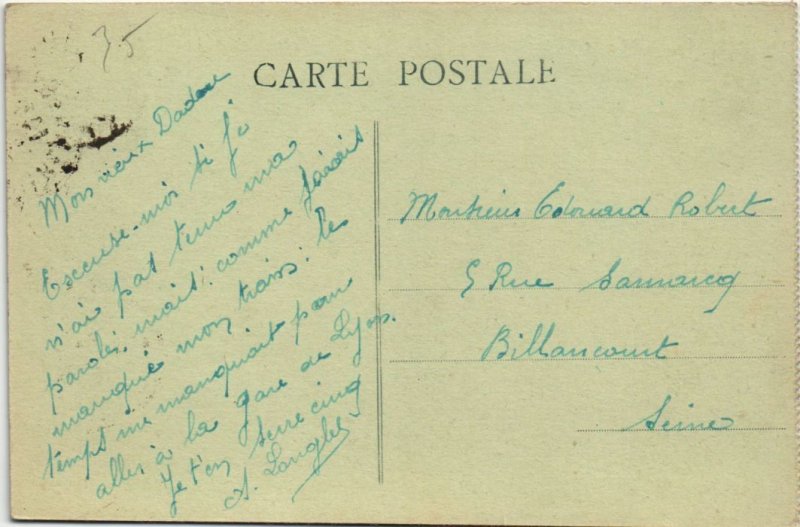 35
CARTE POSTALE
Mon vieux Dadou
Excuse-moi si je
n'ai pas tenu ma
parole, mais: comme j'avais
manqué mon train: le
temps me manquait pour
aller à la gare de Lyon.
Je t'en serre cinq
A.
Monsieur Edouard Robert
5 Rue
Billancourt
Seine